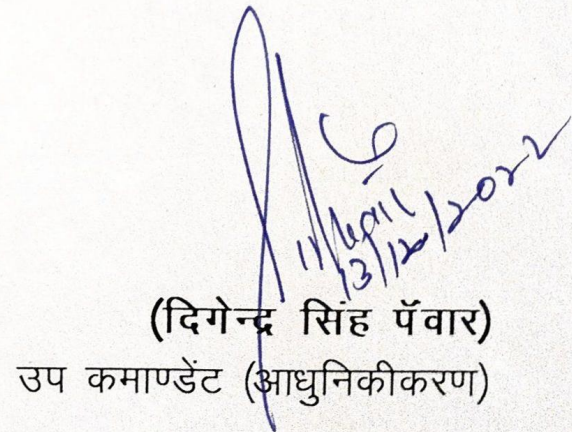 13/12/2022
(दिगेन्द्र सिंह पॅवार)
उप कमाण्डेंट (आधुनिकीकरण)